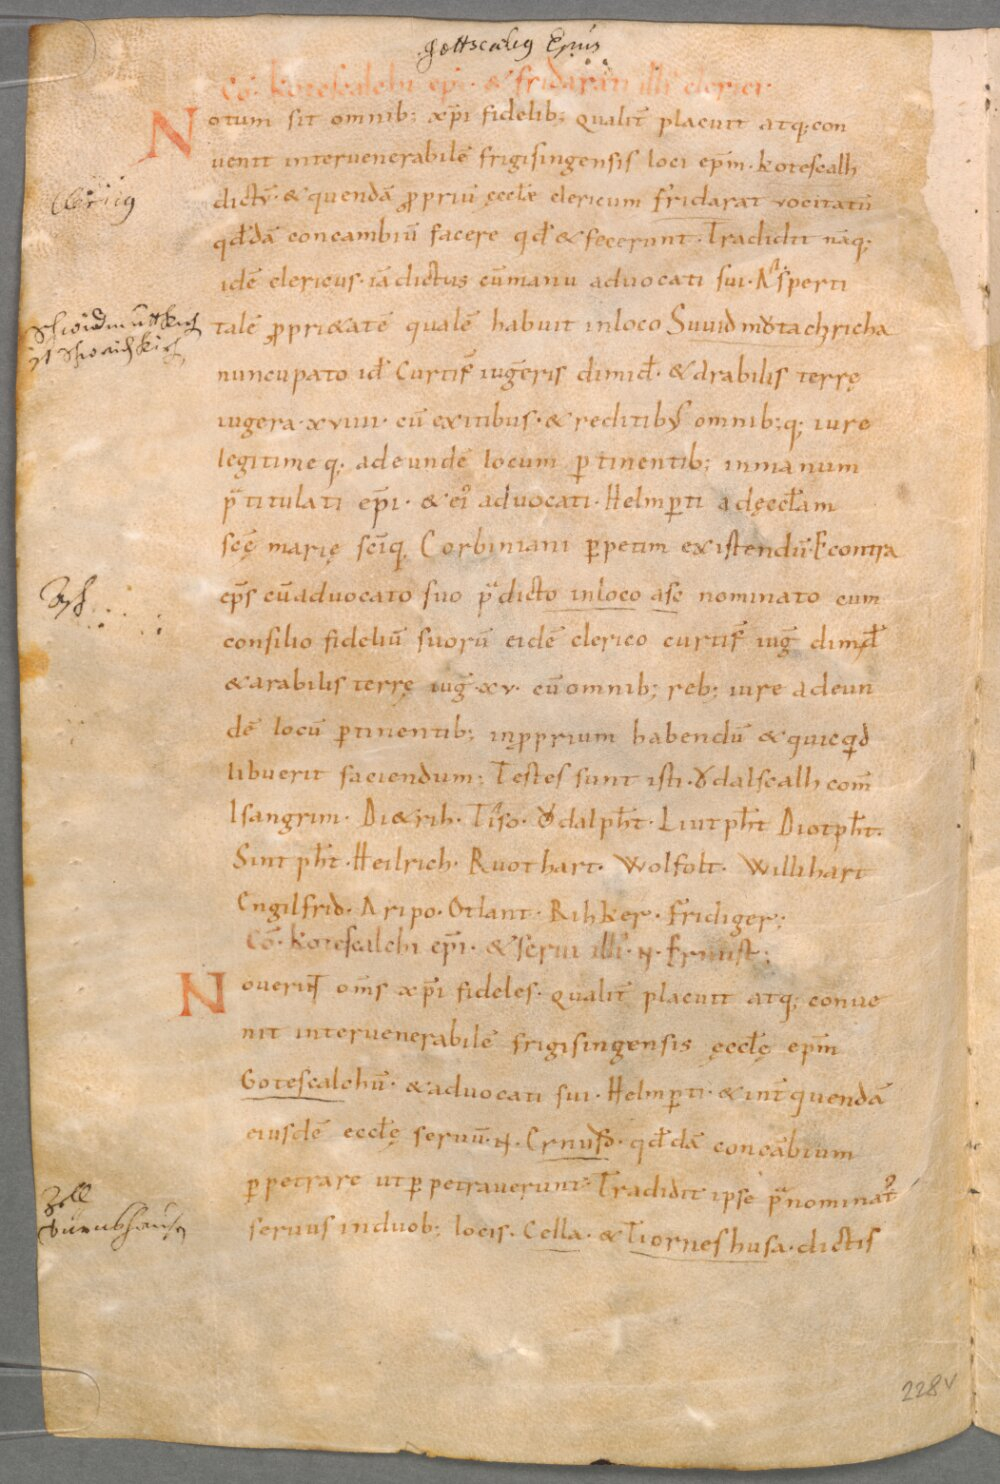 Gottscalcus Epūs
Cō. kotescalchi epi. & fridarati illi clerici.
Notum sit omnib; xp̄i fidelib; qualit̄ placuit atq; con
uenit interuenerabilē frigisingensis loci ep̄m. kotescalh
Clericus
dictū. & quendā ꝓpriū ęcclę clericum fridarat vocitatū
qđdā concambiū facere qđ & fecerunt. Tradidit nāq;
idē clericus. iā dictus cū manu aduocati sui. Ruͦsperti
talē ꝓprietatē qualē habuit inloco Suuidmuͦtachricha
nuncupato id Curtif iugeris dimiđ. & arabilis terrę
iugera xviiii. cū exitibus. & reditibꝰ omnib;q; iure
legitimeq; adeundē locum ꝑtinentib; inmanum
p̄titulati ep̄i. & eiꝰ aduocati. Helmꝑti adęccl̄am
sc̄ę marię sc̄iq; Corbiniani ꝑpetim existendū. Econtra
Asch
ep̄s cū aduocato suo p̄dicto inloco asc nominato cum
consilio fideliū suorū eidē clerico curtif iuḡ dimiđ
& arabilis terrę iuḡ. xv. cū omnib; reb; iure adeun
dē locū ꝑtinentib; inꝓprium habendū & quicqid
libuerit faciendum; Testes sunt isti. Uͦdalscalh com̄
Isangrim. Di&rih. Tiso. Uͦdalꝑht. Liutp̄ht Diotp̄ht.
Sintp̄ht. Heilrich. Ruothart. Wolfolt. Willihart
Engilfrid. Aripo. Otlant. Rihker. fridiger;
Cō. kotescalchi ep̄i. & serui illiꝰ. N. Ernust;
Nouerit̄ om̄s xp̄i fideles. qualit̄ placuit atq; conue
nit interuenerabilē frigisingensis ęccl̄ę ep̄m
Gotescalchū. & aduocati sui. Helmꝑti. & int̄ quendā
eiusdē eccl̄ę seruū. N. Ernust. qđdā concābium
ꝑpetrare ut ꝑpetrauerunt. Tradidit ipse p̄nominatꝰ
Zell
seruus induob; locis. Cella. & Tiorneshusa. dictis
228v